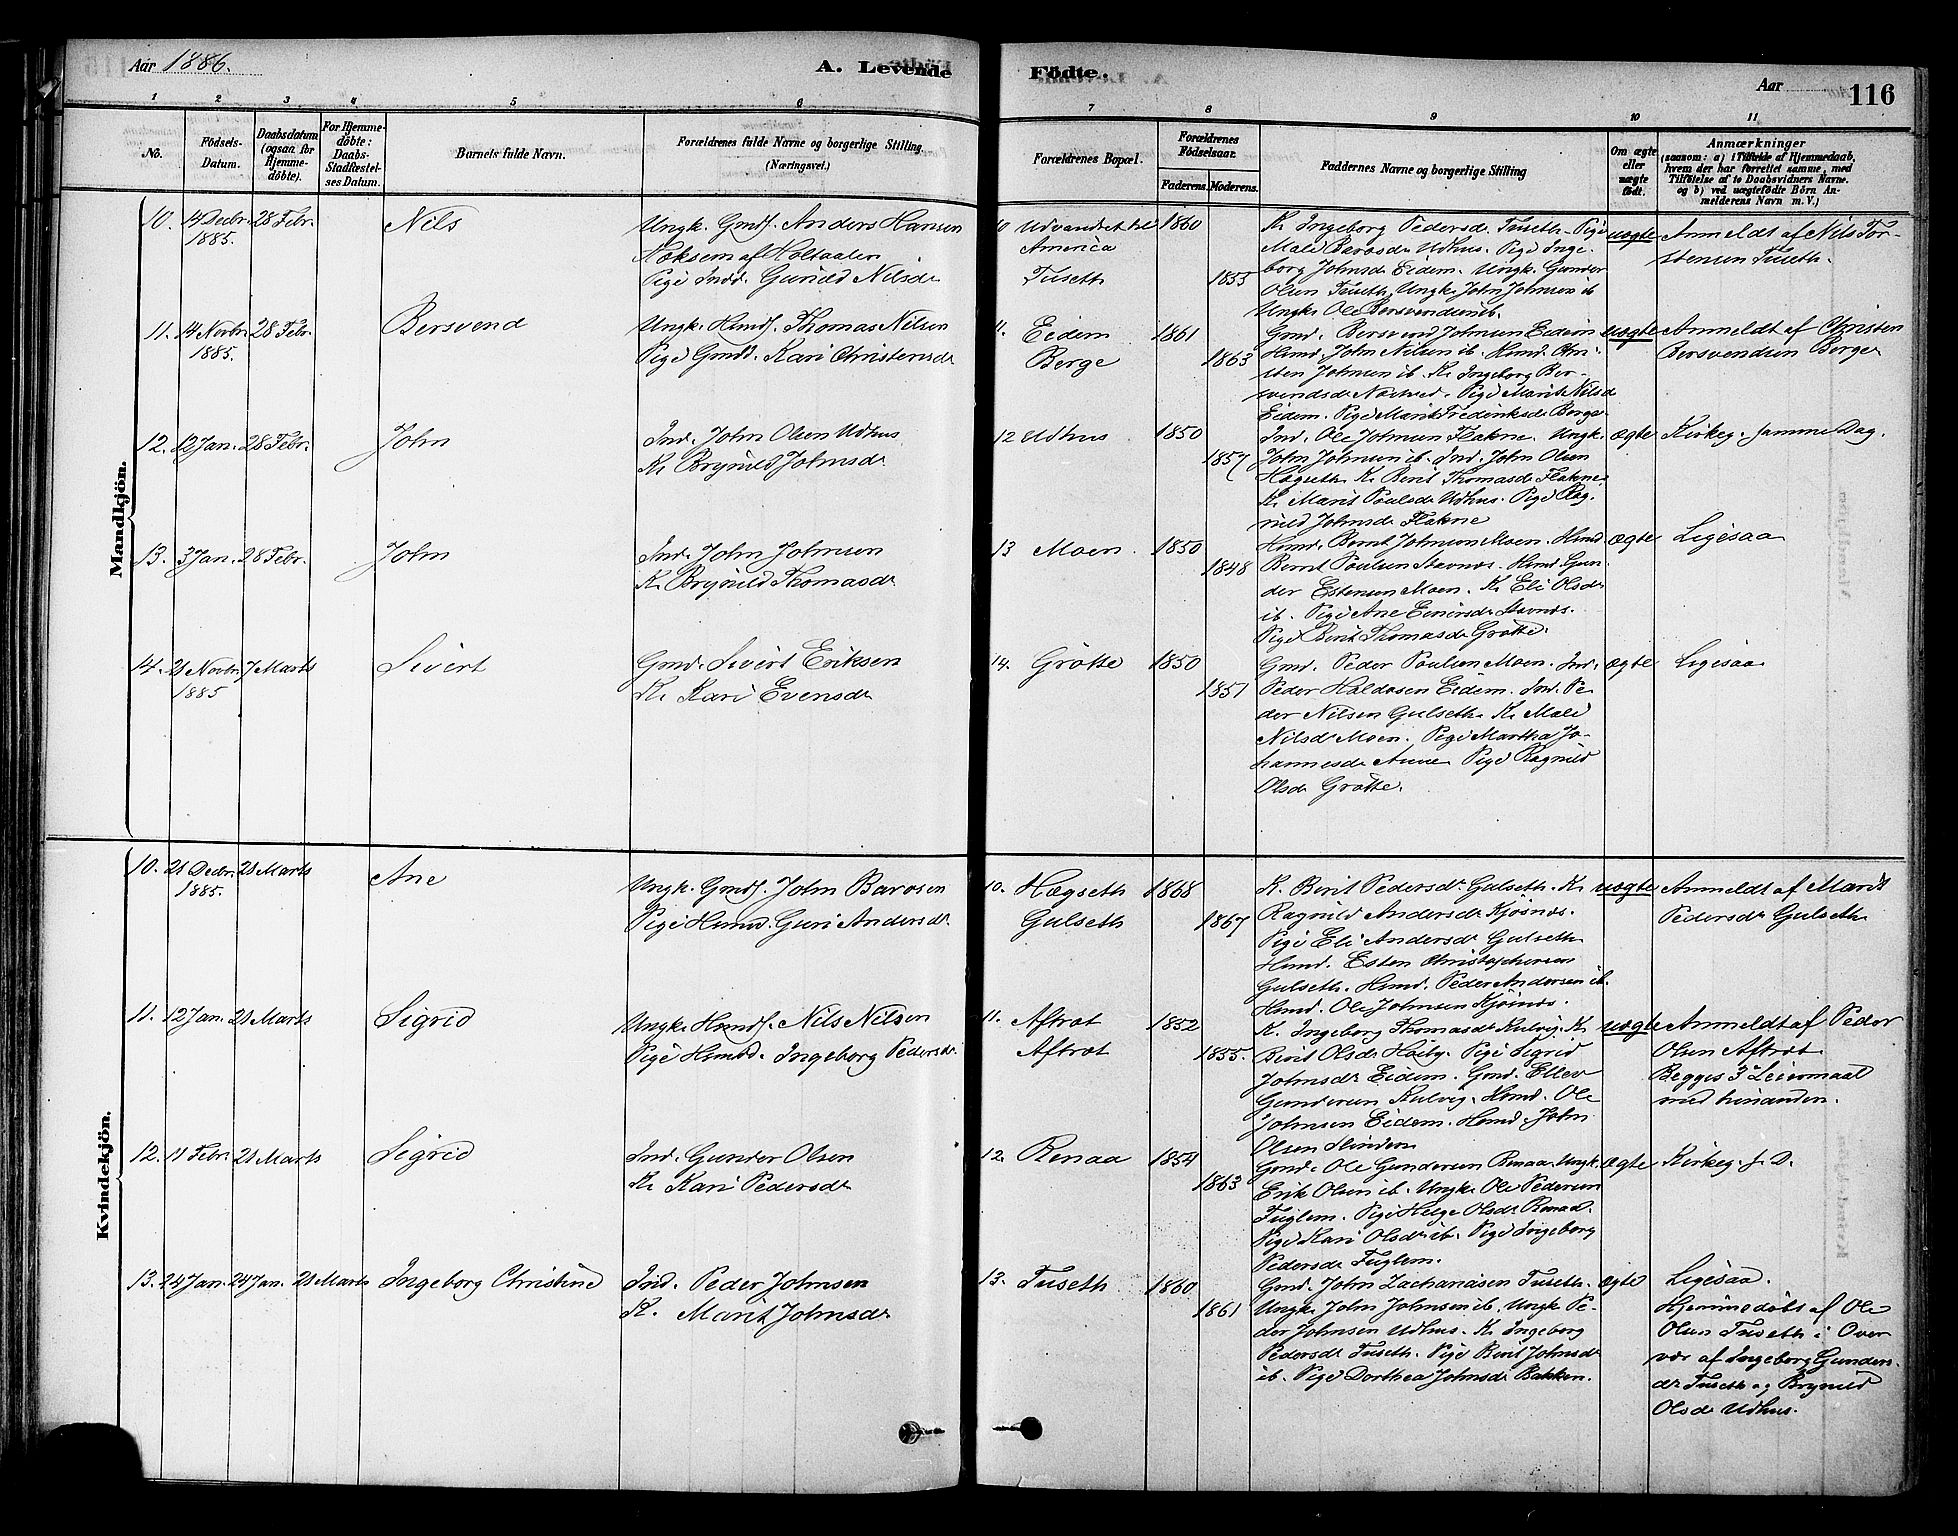 Aar 1886.
A. Levende
Födte.
Aar
116
1 2 3 4 5 6 7 8 9 10 11
No.
Födsels-
Datum.
Daabsdatum
(ogsaa for
Hjemme-
döbte).
For Hjemme-
döbte:
Daabs-
Stadfæstel-
ses Datum.
Barnets fulde Navn.
Forældrenes fulde Navne og borgerlige Stilling
(Næringsvei.)
Forældrenes Bopæl.
Forældrenes
Födselsaar.
Faderens. Moderens.
Faddernes Navne og borgerlige Stilling
Om ægte
eller
uægte
födt.
Anmærkninger
(saasom: a) i Tilfælde af Hjemmedaab,
hvem der har forrettet samme, med
Tilföielse af to Daabsvidners Navne.
og b) ved uægtefödte Börn An-
melderens Navn m. V.)
Mandkjön.
10. 14 Decbr. 28 Febr.
1885.
Nils
Ungk. Gmdf. Anders Hansen
af Holtaalen
Pige Ind. Gunild Nilsdr
10 Udvandret til
America
Tuseth
1860
1855
K. Ingeborg Pedersdr Tuseth. Pige
Male Barosdr Udhus. Pige Inge-
borg Johnsdr Eidem. Ungk. Gunder
Olsen Tuseth. Ungk. John Johnsen ib
Ungk. Ole Bersvendsen ib.
uægte
Anmeldt af Nils Tor-
stensen Tuseth.
11. 14 Novbr. 28 Febr.
1885.
Bersvend
Ungk. Hmdf. Thomas Nilsen
Pige Gmdd. Kari Christensdr
11. Eidem
Berge
1861
1863
Gmd. Bersvend Johnsen Eidem
Hmd. John Nilsen ib. Hmd. Chri-
sten Johnsen ib. K. Ingeborg Ber-
svendsdr Pige Marit Nilsd
Eidem. Pige Marit Fredriksdr Berge
uægte
Anmeldt af Christen
Bersvendsen Berge
12. 12 Jan. 28 Febr.
John
Ind. John Olsen Udhus
K. Brynild Johnsdr
12 Udhus
1850
1857
Ind. Ole Johnsen Flakne. Ungk.
John Johnsen ib. Ind. John Olsen
Hægseth. K. Berit Thomasdr Flakne
K. Marit Poulsdr Udhus. Pige Rag-
nild Johnsdr Flakne
ægte
Kirkeg. samme Dag.
13. 3 Jan. 28 Febr.
John
Ind. John Johnsen
K. Brynild Thomasdr
13 Moen.
1850
1848
Hmd. Bernt Johnsen Moen. Hmd
Bernt Poulsen Stavnes. Hmd Gun-
der Estensen Moen. K. Eli Olsdr
ib. Pige Ane Einersdr Stavnes.
Pige Berit Thomasdr Grötte.
ægte
Ligesaa
14. 21 Novbr. 7 Marts
1885
Sivert
Gmd. Sivert Eriksen
K. Kari Evensdr
14. Grötte
1850
1851
Gmd. Peder Poulsen Moen. Ind.
Peder Haldosen Eidem. Ind. Pe-
der Nilsen Gulseth. K. Male
Nilsdr Moen. Pige Martha Jo-
hannesdr Aune Pige Ragnild
Olsdr Grötte.
ægte
Ligesaa
Kvindekjön.
10. 21 Decbr. 21 Marts
1885.
Ane
Ungk. Gmdf. John Barosen
Pige Hmd. Guri Andersdr
10. Hægseth
Gulseth
1868
1867
K. Berit Pedersdr Gulseth. K.
Ragnild Andersdr Kjösnes.
Pige Eli Andersdr Gulseth
Hmd. Esten Christophersen
Gulseth. Hmd. Peder Andersen ib.
Hmd. Ole Johnsen Kjösnes.
uægte
Anmeldt af Marit
Pedersdr Gulseth
11. 12 Jan. 21 Marts
Sigrid
Ungk. Hmdf. Nils Nilsen
Pige Hmdd. Ingeborg Pedersdr.
11. Aftret
Aftret
1852
1855.
K. Ingeborg Thomasdr Kulvig. K.
Berit Olsdr Høiby. Pige Sigrid
Johnsdr Eidem. Gmd. Ellev
Gundersen Kulvig. Hmd. Ole
Johnsen Eidem. Hmd. John
Olsen
uægte
Anmeldt af Peder
Olsen Aftret
Begges 3die Leiermaal
med hinanden.
12. 11 Febr. 21 Marts
Sigrid
Ind. Gunder Olsen
K. Kari Pedersdr
12. Renaa
1854
1863
Gmd. Ole Gundersen Renaa. Ungk.
Erik Olsen ib. Ungk. Ole Pedersen
Fuglem. Pige Helge Olsdr Renaa.
Pige Kari Olsdr ib. Pige Ingeborg
Pedersdr Fuglem.
ægte
Kirkeg. s. D.
13. 24 Jan. 24 Jan. 21 Marts
Ingeborg Christine
Ind. Peder Johnsen
K. Marit Johnsdr
13. Tuseth
1860
1861
Gmd. John Zachariasen Tuseth.
Ungk. John Johnsen ib. Ungk. Pe-
der Johnsen Udhus. K. Ingeborg
Pedersdr Tuseth. Pige Berit Johnsdr
ib. Pige Dorthea Johnsdr Bakken.
ægte
Ligesaa.
Hjemmedöbt af Ole
Olsen Tuseth i Over-
vær af Ingeborg Gunders-
dr Tuseth og Brynild
Olsdr Udhus.